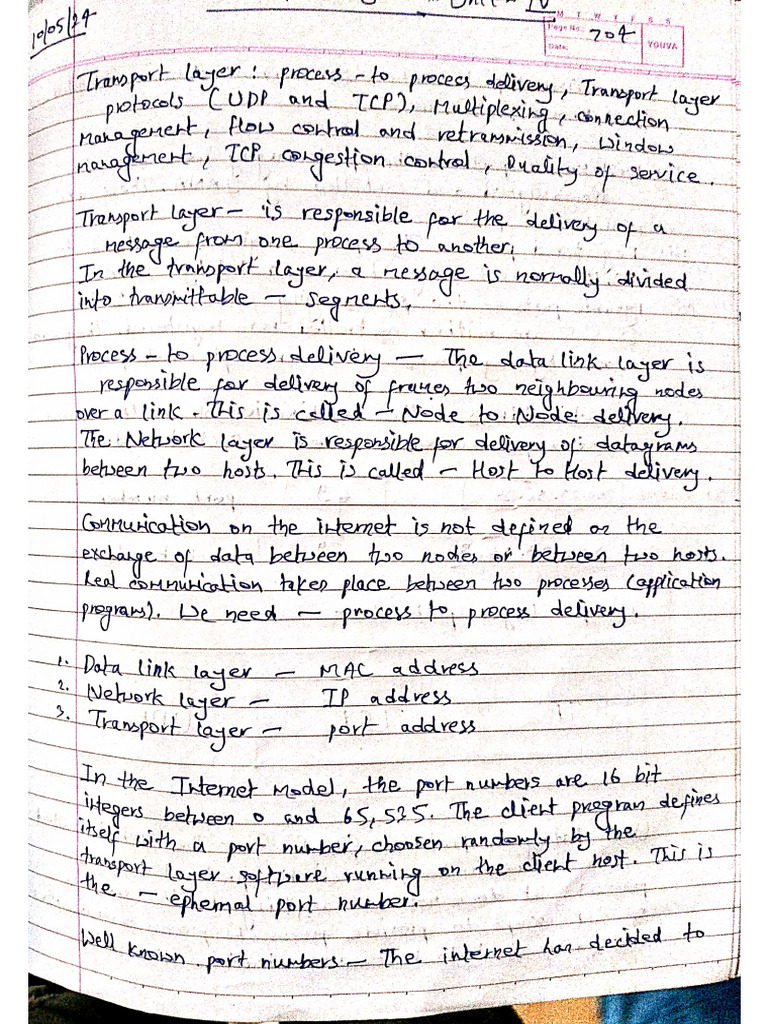 Unit - IV
10/05/24
M T W T F S S
Page No.: 204
Date:
YOUVA
Transport layer : process - to process delivery, Transport layer
protocols (UDP and TCP), Multiplexing, connection
management, flow control and retransmission, window
management, TCP congestion control, Quality of service.
Transport layer - is responsible for the delivery of a
message from one process to another.
In the transport layer, a message is normally divided
into transmittable - segments.
Process - to process delivery - The data link layer is
responsible for delivery of frames two neighbouring nodes
over a link. This is called - Node to Node delivery.
The Network layer is responsible for delivery of datagrams
between two hosts. This is called - Host to Host delivery.
Communication on the internet is not defined on the
exchange of data between two nodes or between two hosts.
Real communication takes place between two processes (application
programs). We need - process to process delivery.
1. Data link layer - MAC address
2. Network layer - IP address
3. Transport layer - port address
In the Internet Model, the port numbers are 16 bit
integers between 0 and 65,535. The client program defines
itself with a port number, choosen randomly by the
transport layer software running on the client host. This is
the - ephemal port number.
Well known port numbers - The internet has decided to